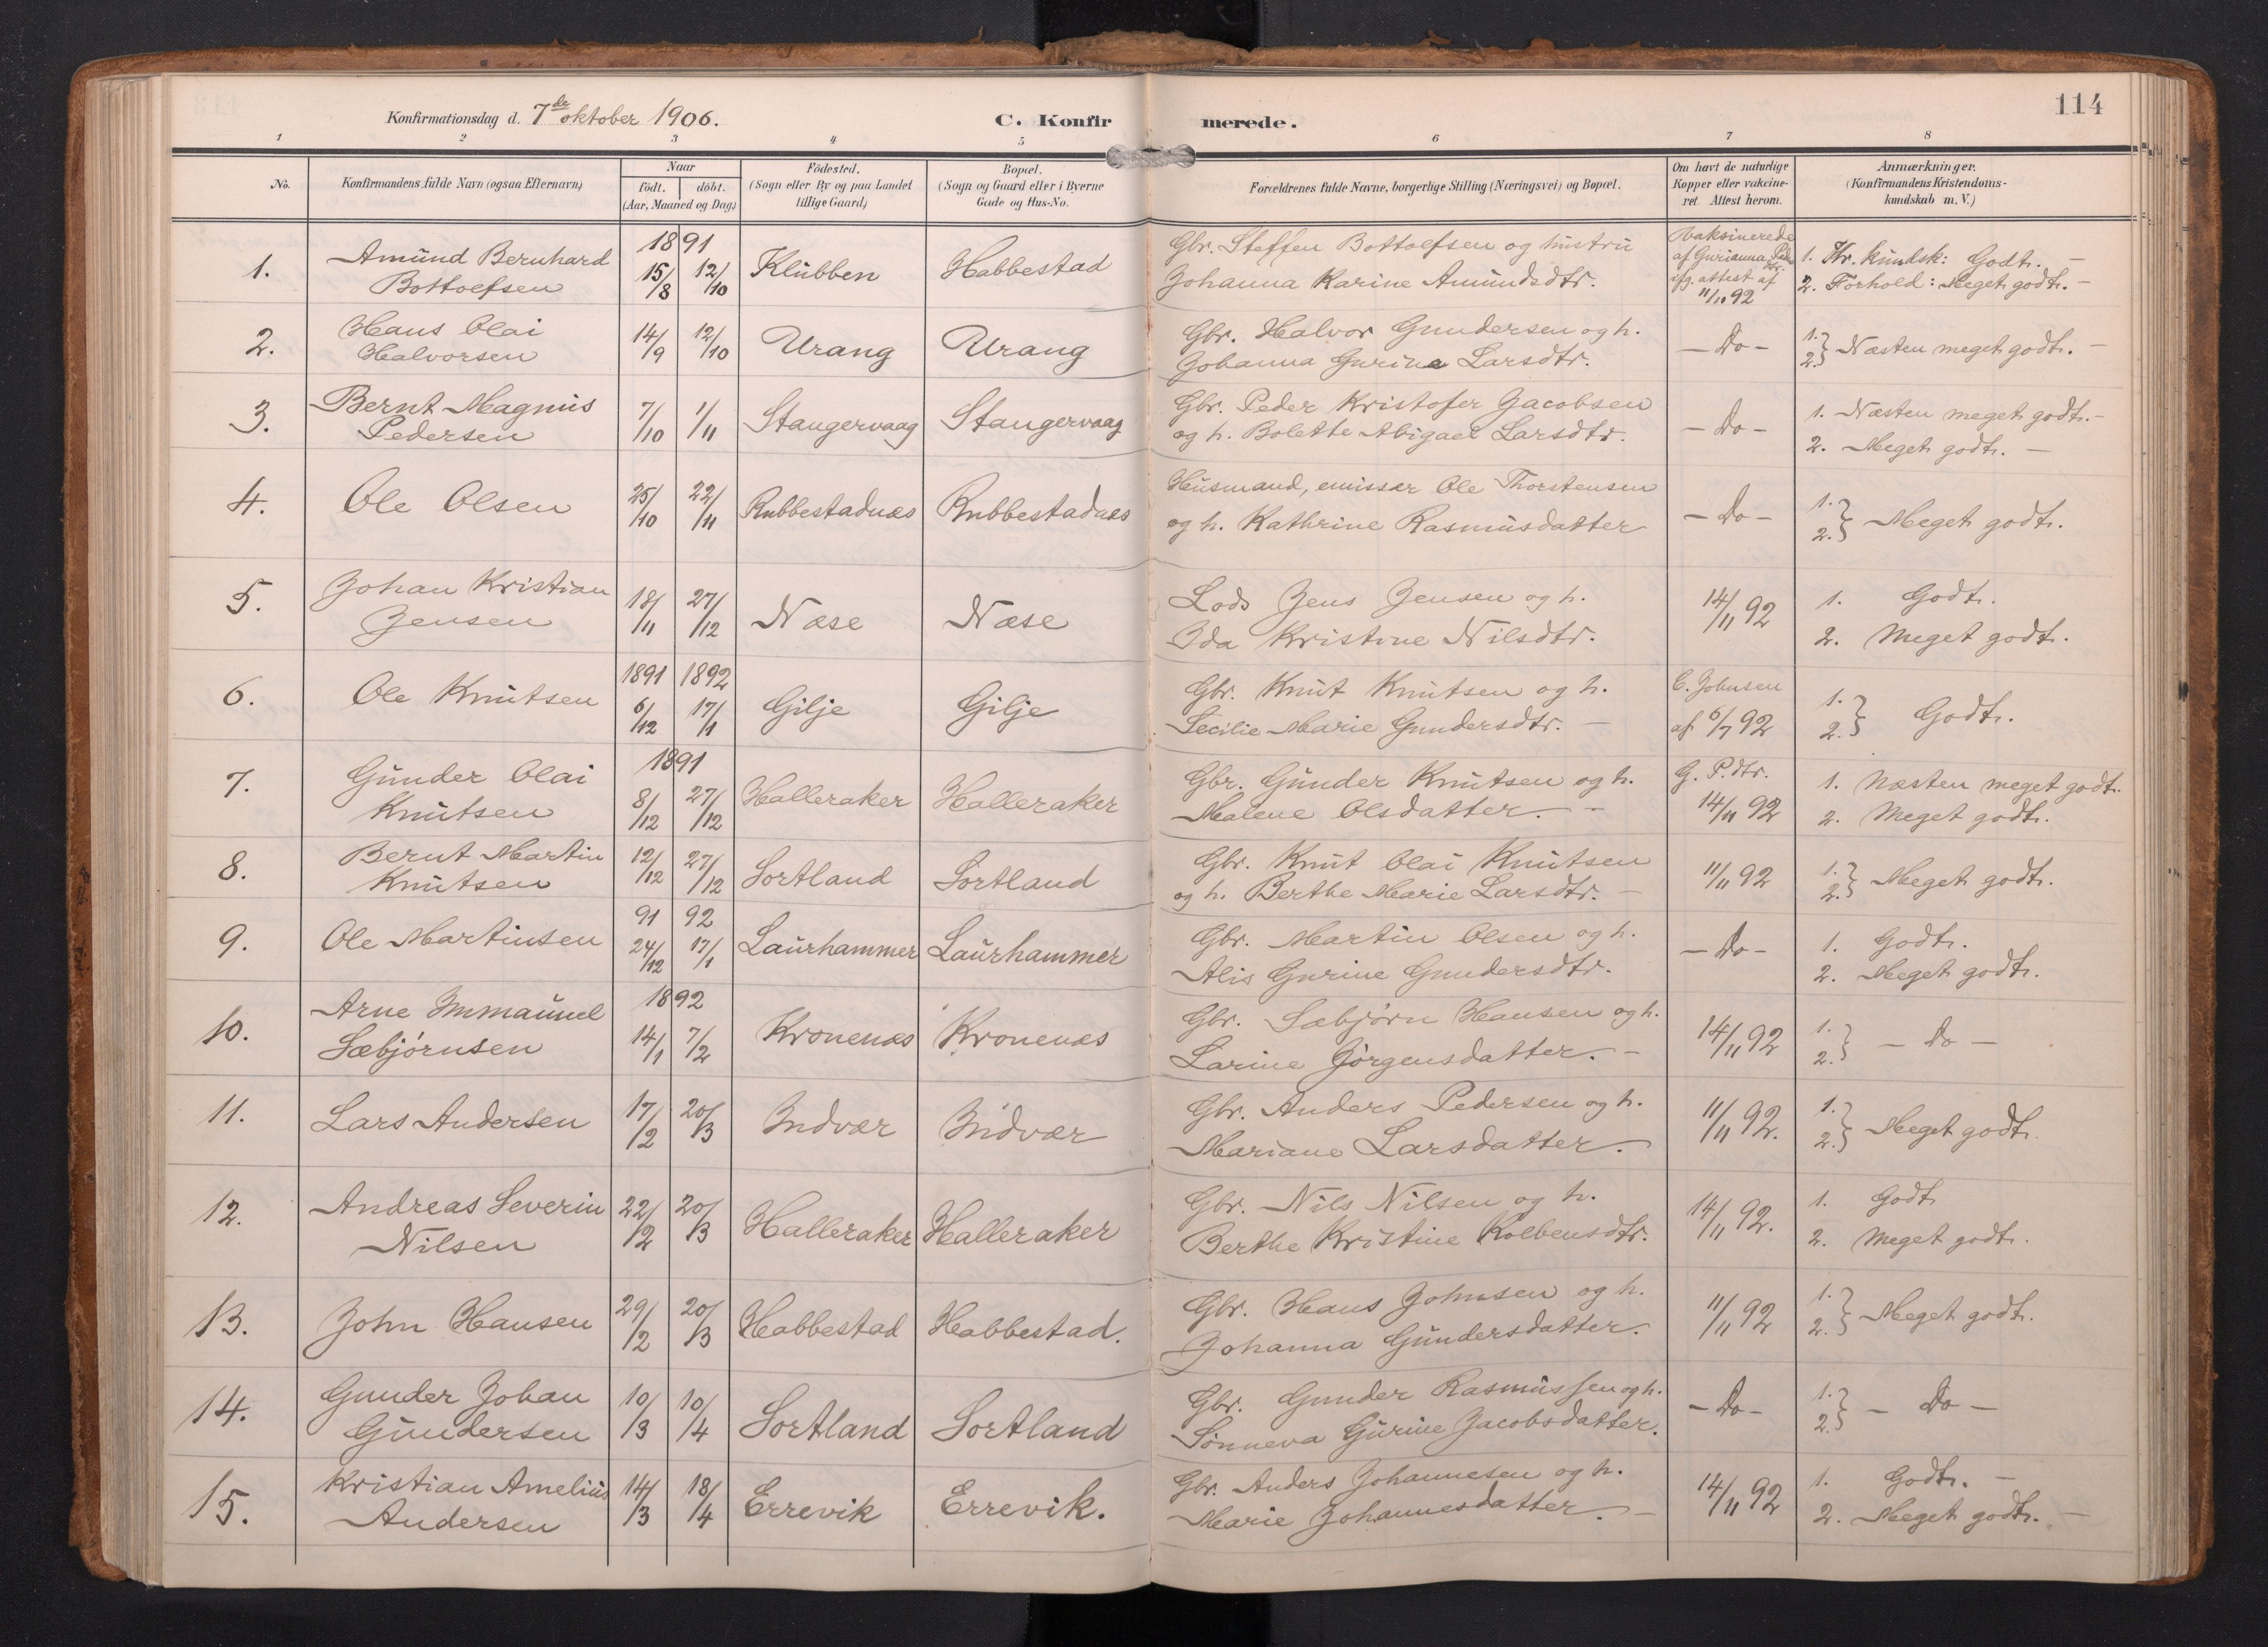 Konfirmationsdag d. 7de oktober 1906. C. Konfirmerede. 114
1 2 3 4 5 6 7 8
No.
Konfirmandens fulde Navn (ogsaa Efternavn)
Naar
født. døbt.
(Aar, Maaned og Dag)
Fødested.
(Sogn eller By og paa Landet
tillige Gaard)
Bopæl.
(Sogn og Gaard eller i Byerne
Gade og Hus-No.
Forældrenes fulde Navne, borgerlige Stilling (Næringsvei) og Bopæl.
Om havt de naturlige
Kopper eller vakcine-
ret. Attest herom.
Anmærkninger.
(Konfirmandens Kristendoms-
kundskab m. V.)
1891
1. Amund Bernhard 15/8 12/10 Klubben Habbestad Gbr. Steffen Bottolfsen og hustru Vaksinerede 1. Kr. kundsk: Godt. —
Bottolfsen Johanna Karine Amundsdtr. af Gurianna Pedersdtr. ifg. attest af 11/11 92 2. Forhold: Meget godt. —
2. Hans Olai 14/9 12/10 Urang Urang Gbr. Halvor Gundersen og h. — Do — 1. } Næsten meget godt. —
Halvorsen Johanna Gurine Larsdtr. 2. }
3. Bernt Magnus 7/10 1/11 Stangervaag Stangervaag Gbr. Peder Kristofer Jacobsen — Do — 1. Næsten meget godt. —
Pedersen og h. Bolette Abigael Larsdtr. 2. Meget godt. —
4. Ole Olsen 25/10 22/11 Rubbestadnæs Rubbestadnæs Husmand, emissær Ole Thorstensen — Do — 1. } Meget godt.
og h. Kathrine Rasmusdatter 2. }
5. Johan Kristian 18/11 27/12 Næse Næse Lods Jens Jensen og h. 14/11 92 1. Godt.
Jensen Ida Kristine Nilsdtr. 2. Meget godt.
1891 1892
6. Ole Knutsen 6/12 17/1 Gilje Gilje Gbr. Knut Knutsen og h. C. Johnsen 1. } Godt.
Secilie Marie Gundersdtr. — af 6/7 92 2. }
1891
7. Gunder Olai 8/12 27/12 Halleraker Halleraker Gbr. Gunder Knutsen og h. G. P.dtr. 1. Næsten meget godt.
Knutsen Malene Olsdatter. — 14/11 92 2. Meget godt.
8. Bernt Martin 12/12 27/12 Sortland Sortland Gbr. Knut Olai Knutsen 11/11 92 1. } Meget godt.
Knutsen og h. Berthe Marie Larsdtr. — 2. }
91 92
9. Ole Martinsen 24/12 17/1 Laurhammer Laurhammer Gbr. Martin Olsen og h. — Do — 1. Godt.
Alis Gurine Gundersdtr. 2. Meget godt.
1892
10. Arne Immanuel 14/1 7/2 Kronenæs Kronenæs Gbr. Sæbjørn Hansen og h. 14/11 92 1. } — Do —
Sæbjørnsen Larine Jørgensdatter. — 2. }
11. Lars Andersen 17/2 20/3 Indvær Indvær Gbr. Anders Pedersen og h. 11/11 92. 1. } Meget godt.
Mariane Larsdatter. 2. }
12. Andreas Severin 22/2 20/3 Halleraker Halleraker Gbr. Nils Nilsen og h. 14/11 92. 1. Godt
Nilsen Berthe Kristine Kolbensdtr. 2. Meget godt.
13. John Hansen 29/2 20/3 Habbestad Habbestad. Gbr. Hans Johnsen og h. 11/11 92 1. } Meget godt.
Johanna Gundersdatter. 2. }
14. Gunder Johan 10/3 10/4 Sortland Sortland Gbr. Gunder Rasmussen og h. — Do — 1. } — Do —
Gundersen Sønneva Gurine Jacobsdatter. 2. }
15. Kristian Amelius 14/3 18/4 Errevik Errevik. Gbr. Anders Johannesen og h. 14/11 92 1. Godt. —
Andersen Marie Johannesdatter. — 2. Meget godt. —